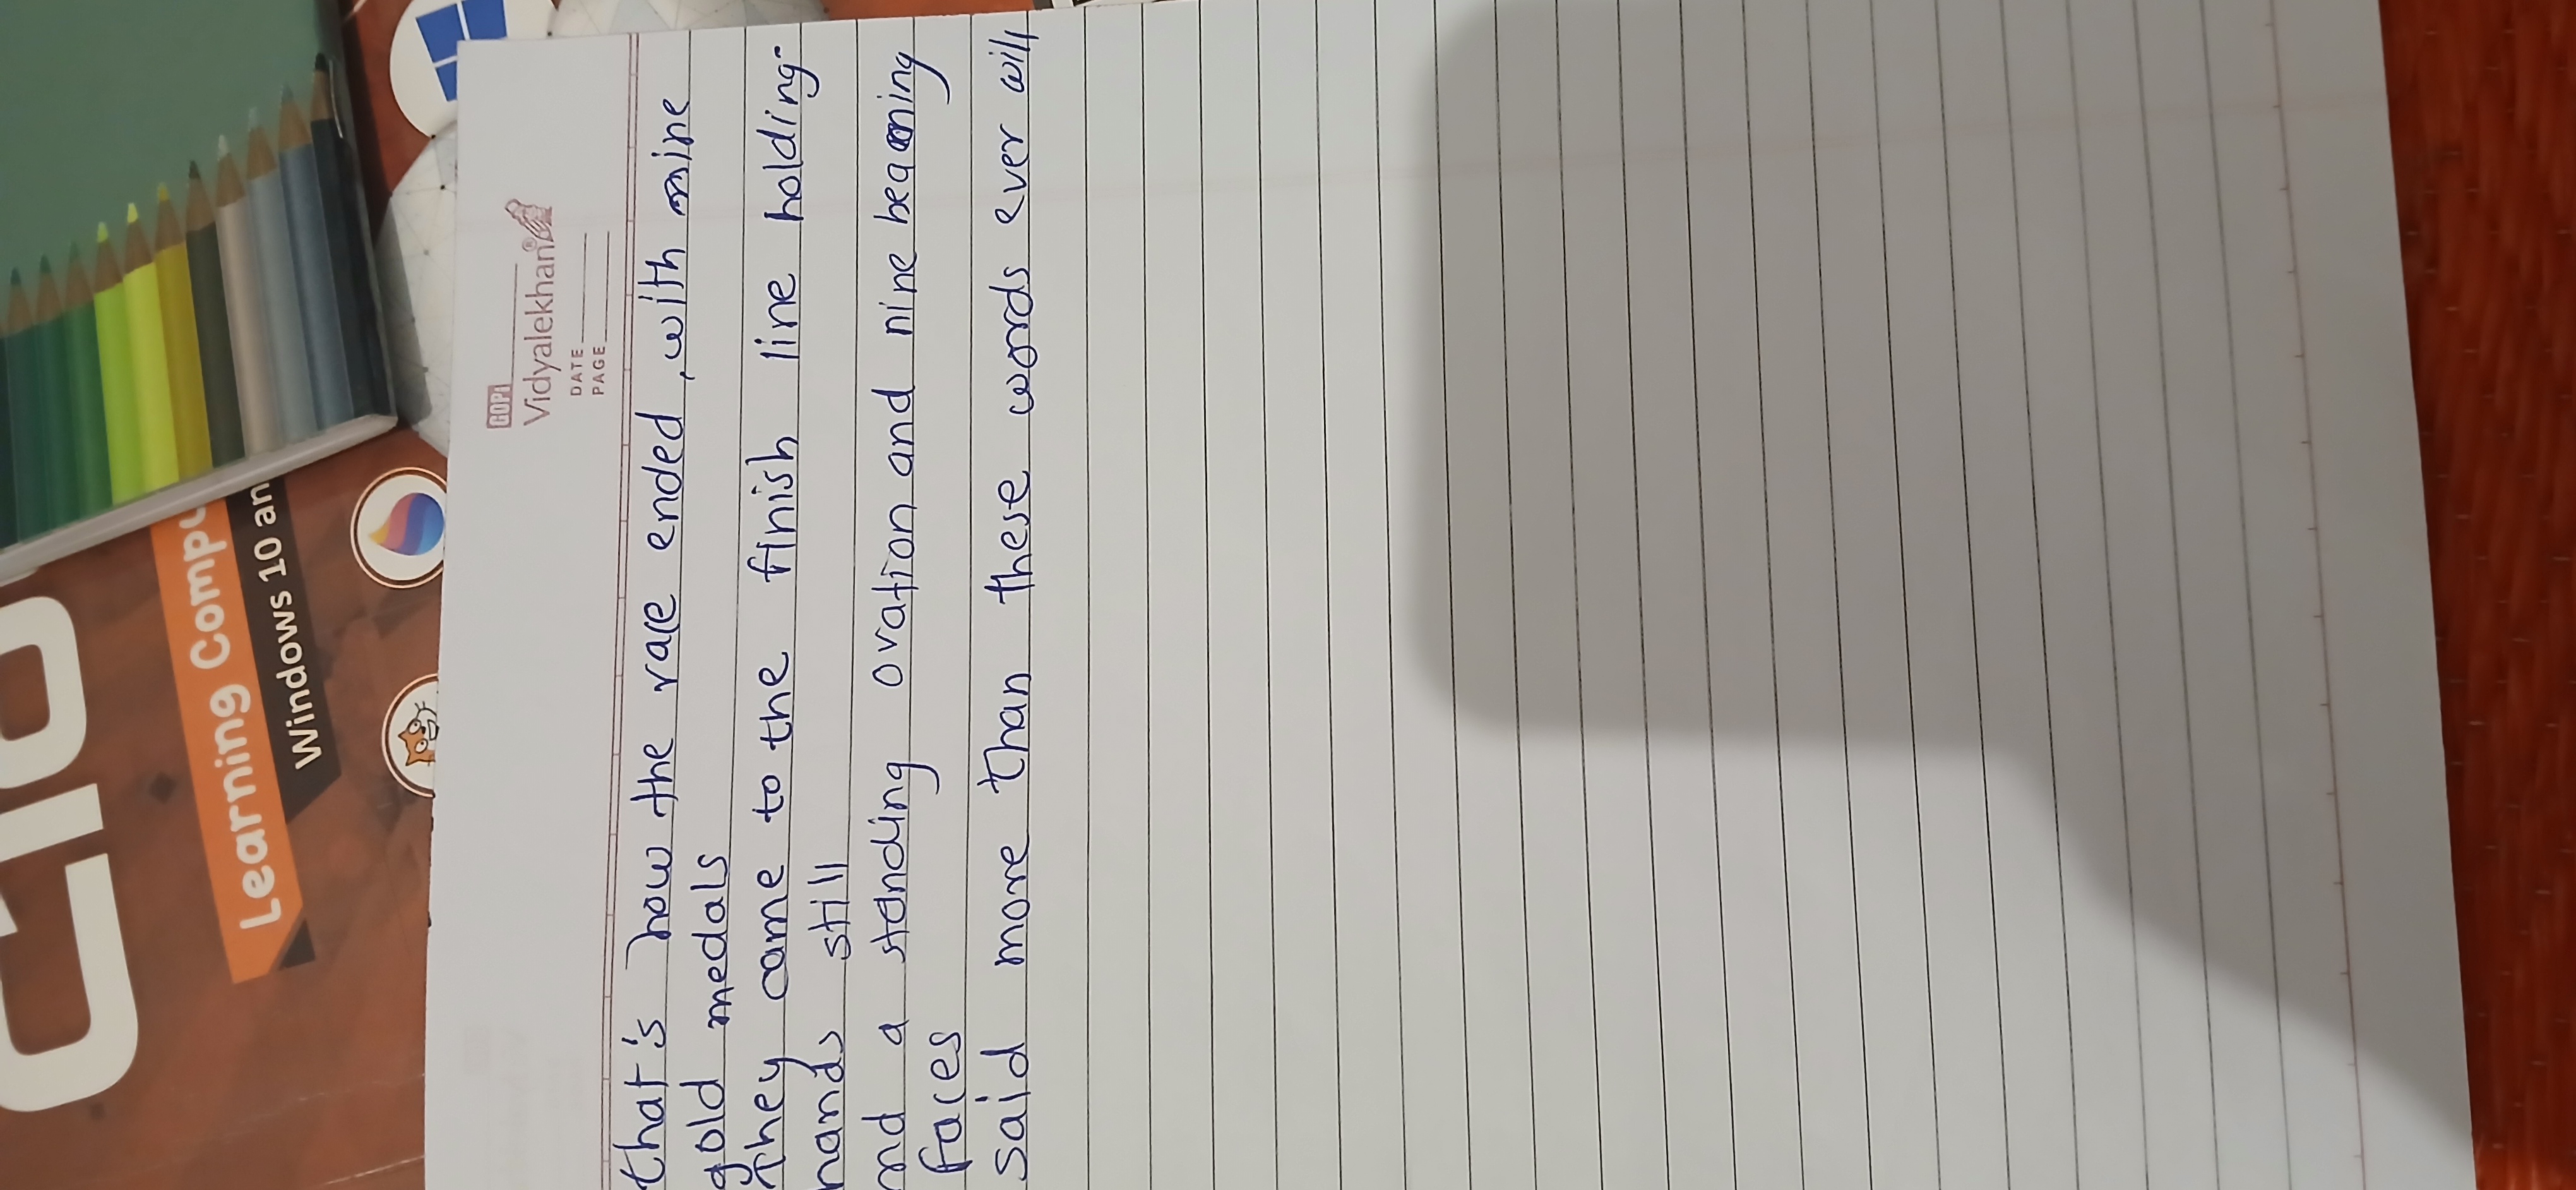 Learning Compu
Windows 10 an
GOPI
Vidyalekhan®
DATE
PAGE
that's how the race ended, with nine
gold medals
They came to the finish line holding-
hands still
nd a standing ovation and nine beaming
faces
said more than these words ever will